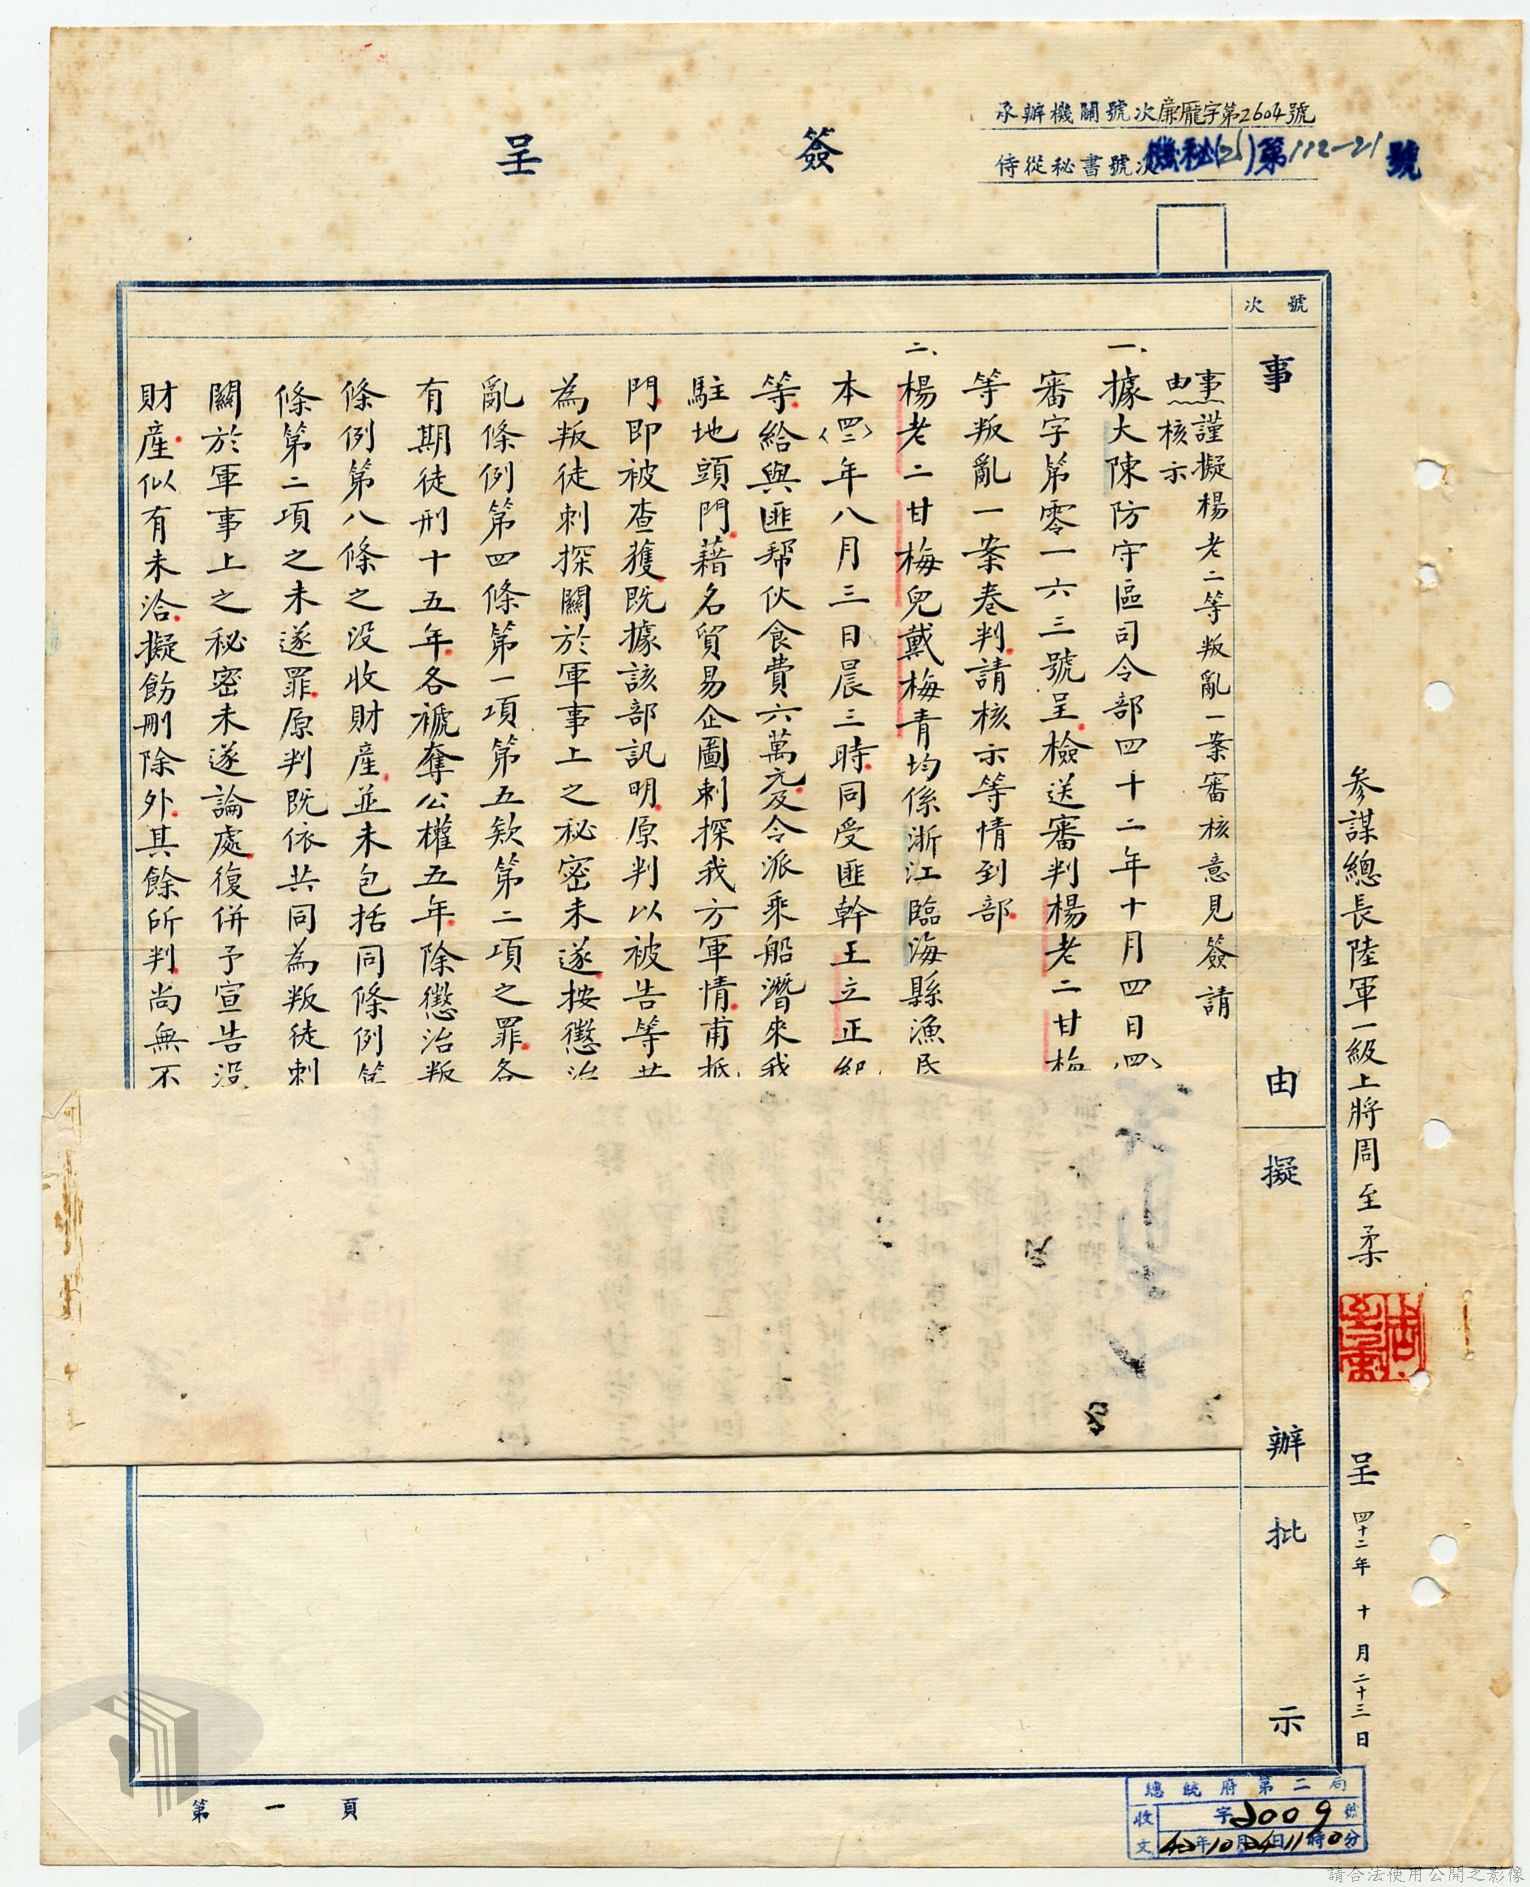 簽呈
承辦機關號次廉龐字第2604號
侍從秘書號次機秘(21)第112-21號
號次
事由
擬辦
批示
參謀總長陸軍一級上將周至柔
呈 四十二年十月二十三日
事由 謹擬楊老二等叛亂一案審核意見簽請
核示
一、據大陳防守區司令部四十二年十月四日(四
審字第零一六三號呈檢送審判楊老二甘梅
等叛亂一案卷判請核示等情到部
二、楊老二甘梅兒戴梅青均係浙江臨海縣漁民
本(四二)年八月三日晨三時同受匪幹王立正
等給與匪幣伙食費六萬元及令派乘船潛來我
駐地頭門藉名貿易企圖刺探我方軍情甫抵
門即被查獲既據該部訊明原判以被告等共
為叛徒刺探關於軍事上之秘密未遂按懲治
亂條例第四條第一項第五款第二項之罪各
有期徒刑十五年各褫奪公權五年除懲治叛
條例第八條之沒收財產並未包括同條例第
條第二項之未遂罪原判既依共同為叛徒刺
關於軍事上之秘密未遂論處復併予宣告沒
財產似有未洽擬飭刪除外其餘所判尚無不
第一頁
總統府第二局
收文 字2009號
42年10月24日11時0分
請合法使用公開之影像